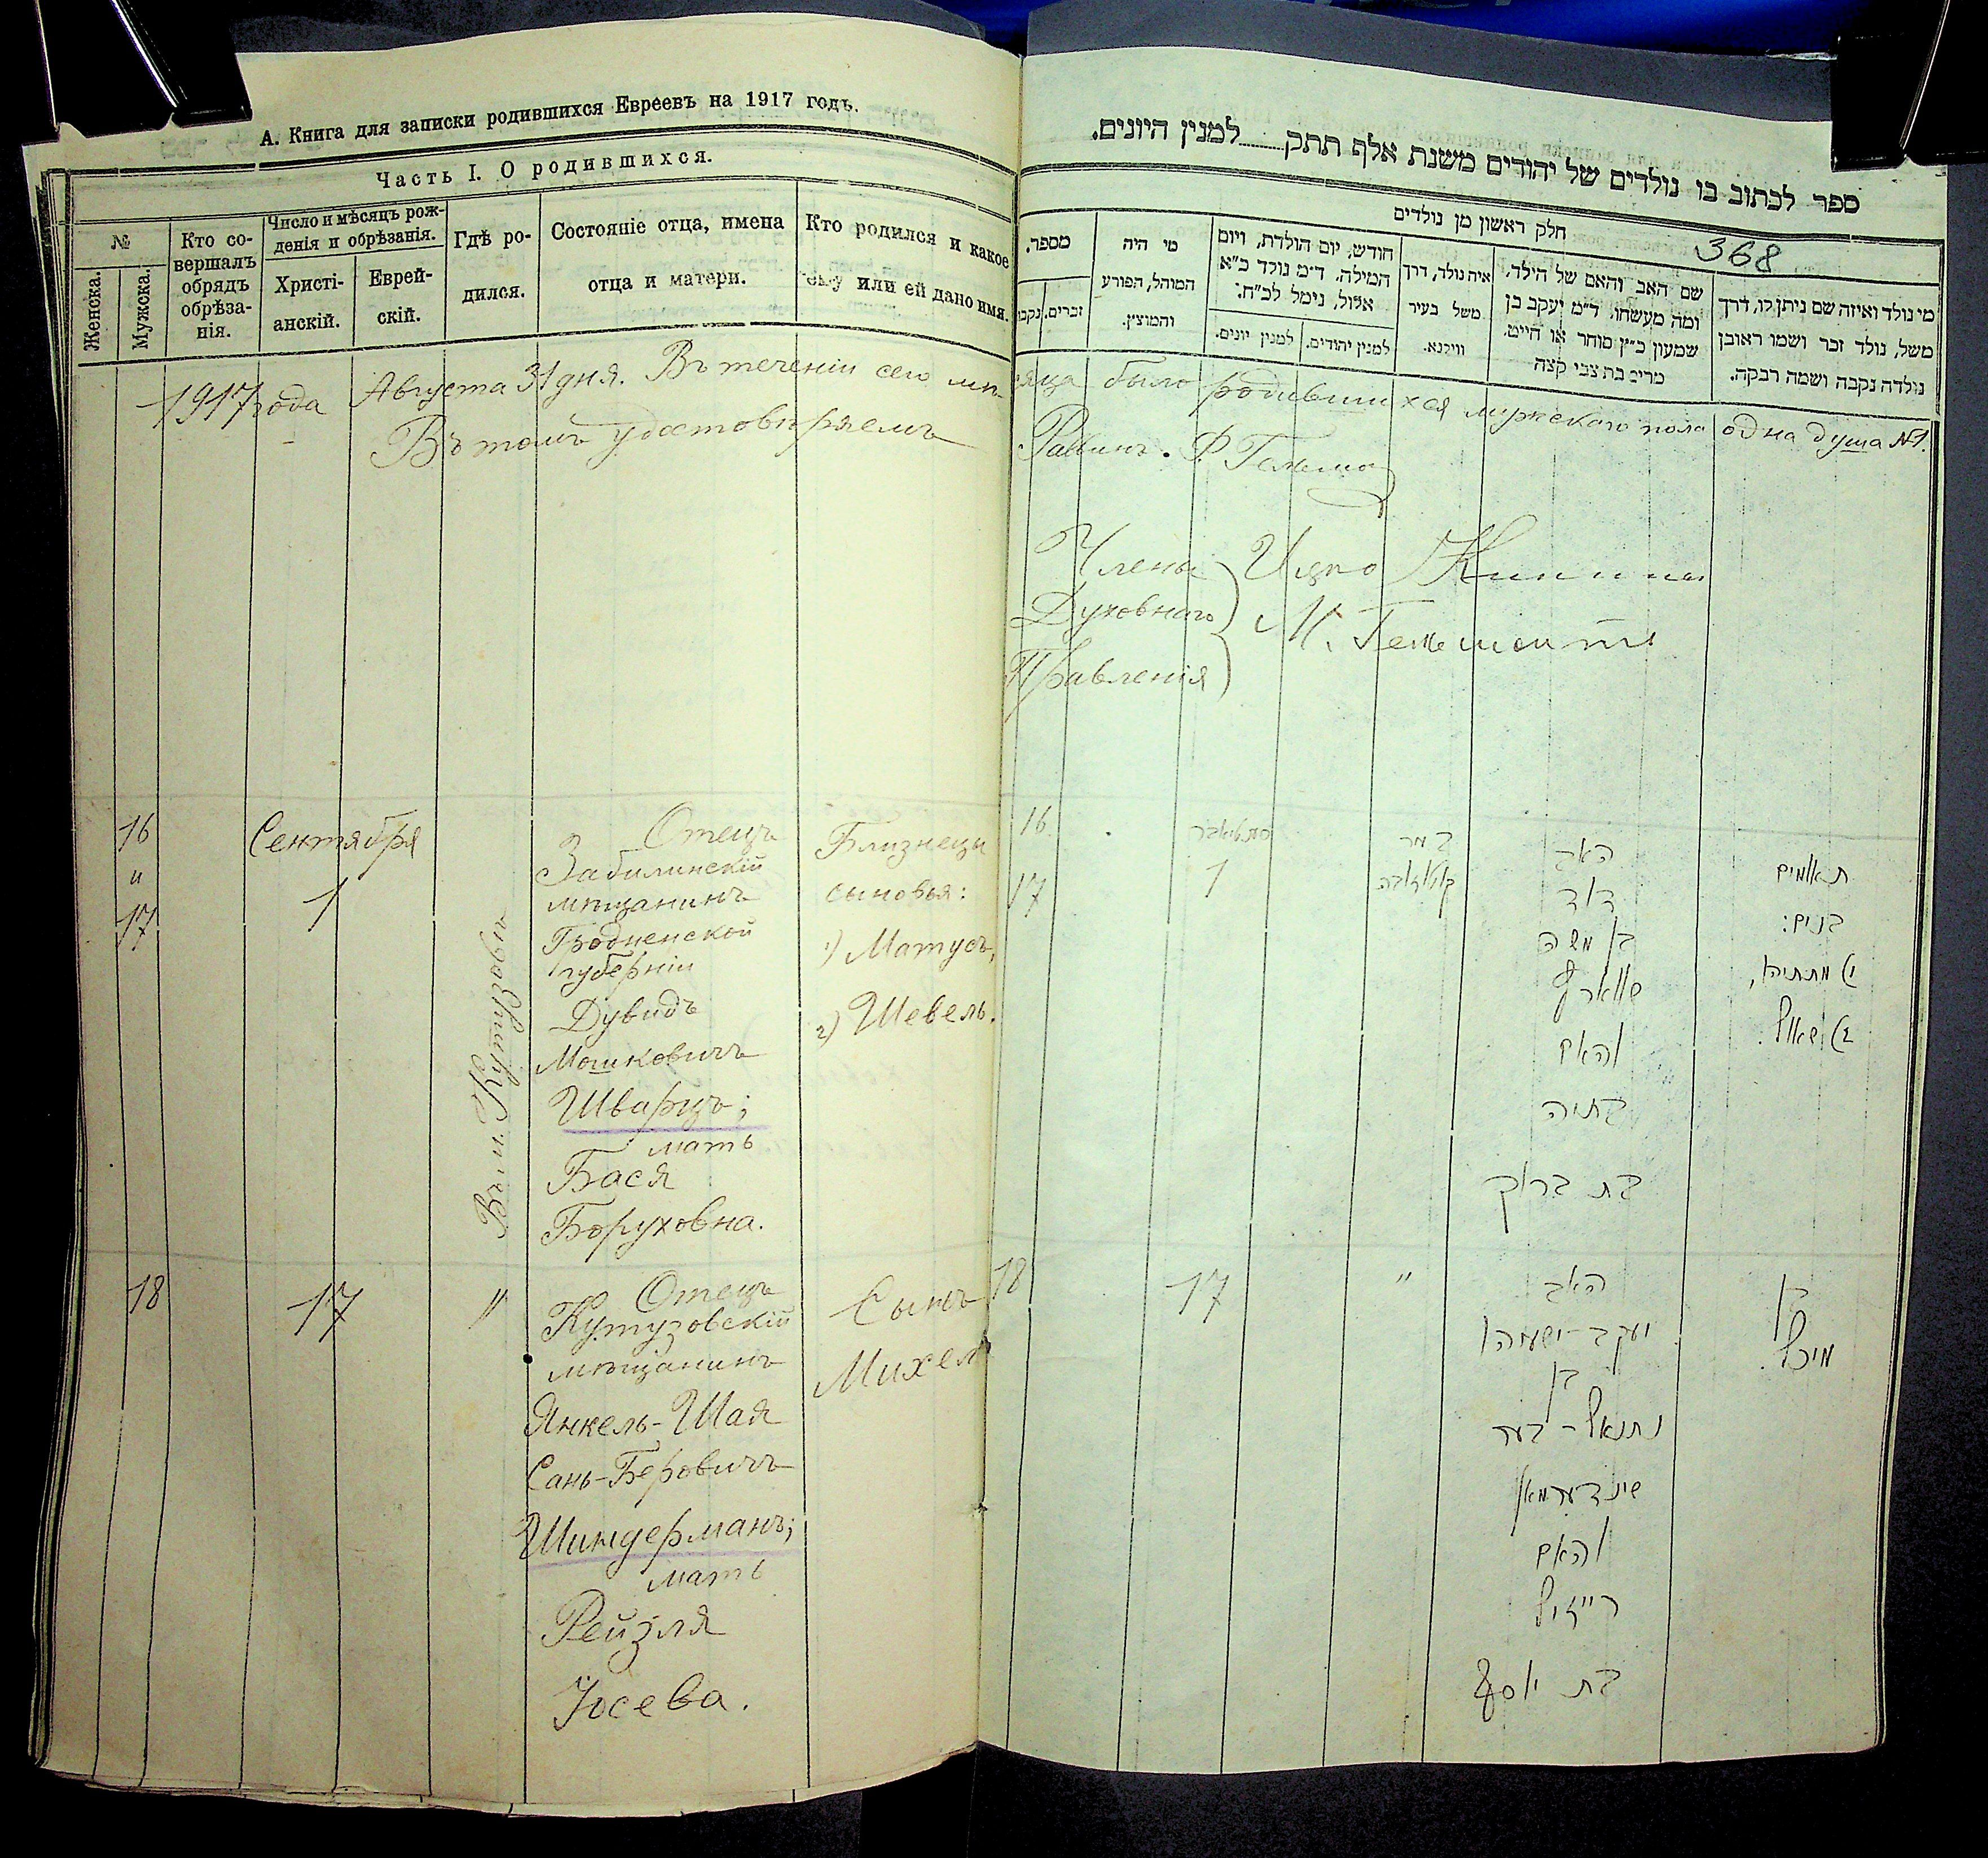 А. Книга для записки родившихся Евреевъ на 1917 годъ.
Часть I. О родившихся.
№
Женска.
Мужска.
Кто со-
вершалъ
обрядъ
обрѣза-
нія.
Число и мѣсяцъ рож-
денія и обрѣзанія.
Христі-
анскій.
Еврей-
скій.
Гдѣ ро-
дился.
Состояніе отца, имена
отца и матери.
Кто родился и какое
ему или ей дано имя.
1917 года Августа 31 дня. Въ теченіи сего мѣ-
сяца было родившихся мужскаго пола одна душа №1.
Въ томъ удостовѣряемъ
Раввинъ. Ф.
Члены
Духовнаго
Правленія
16
и
17
Сентября
1
Отецъ
мѣщанинъ
Гродненской
губерніи
Дувидъ
Мошковичъ
Шварцъ;
мать
Бася
Боруховна.
Близнецы
сыновья:
1) Матусъ,
2) Шевель.
18
17
"
Отецъ
Кутузовскій
мѣщанинъ
Янкель-Шая
Сань-Беровичъ
Шиндерманъ;
мать
Рейзля
Іосева.
Сынъ
Михель
ספר לכתוב בו נולדים של יהודים משנת אלף תתק למנין היונים.
חלק ראשון מן נולדים
368
מספר.
זכרים.
נקבו
מי היה
המוהל, הפורע
והמוצץ.
חודש, יום הולדת, ויום
המילה. ד״מ נולד כ״א
אלול, נימל לכ״ח:
למנין יהודים.
למנין יונים.
איה נולד, דרך
משל בעיר
ווילנא.
שם האב והאם של הילד,
ומה מעשהו, ד״מ יעקב בן
שמעון כ״ץ סוחר או חייט.
מרים בת צבי קצה
מי נולד ואיזה שם ניתן לו, דרך
משל, נולד זכר ושמו ראובן
נולדה נקבה ושמה רבקה.
16
17
1
האב
דוד
בן משה
שווארץ
והאם
בתיה
בת ברוך
תאומים
בנים:
1) מתתיהו,
2) שאול.
18
17
"
האב
יעקב-ישעיהו
בן
נתנאל-בער
שינדערמאן
והאם
רייזיל
בת יוסף
בן
מיכל.